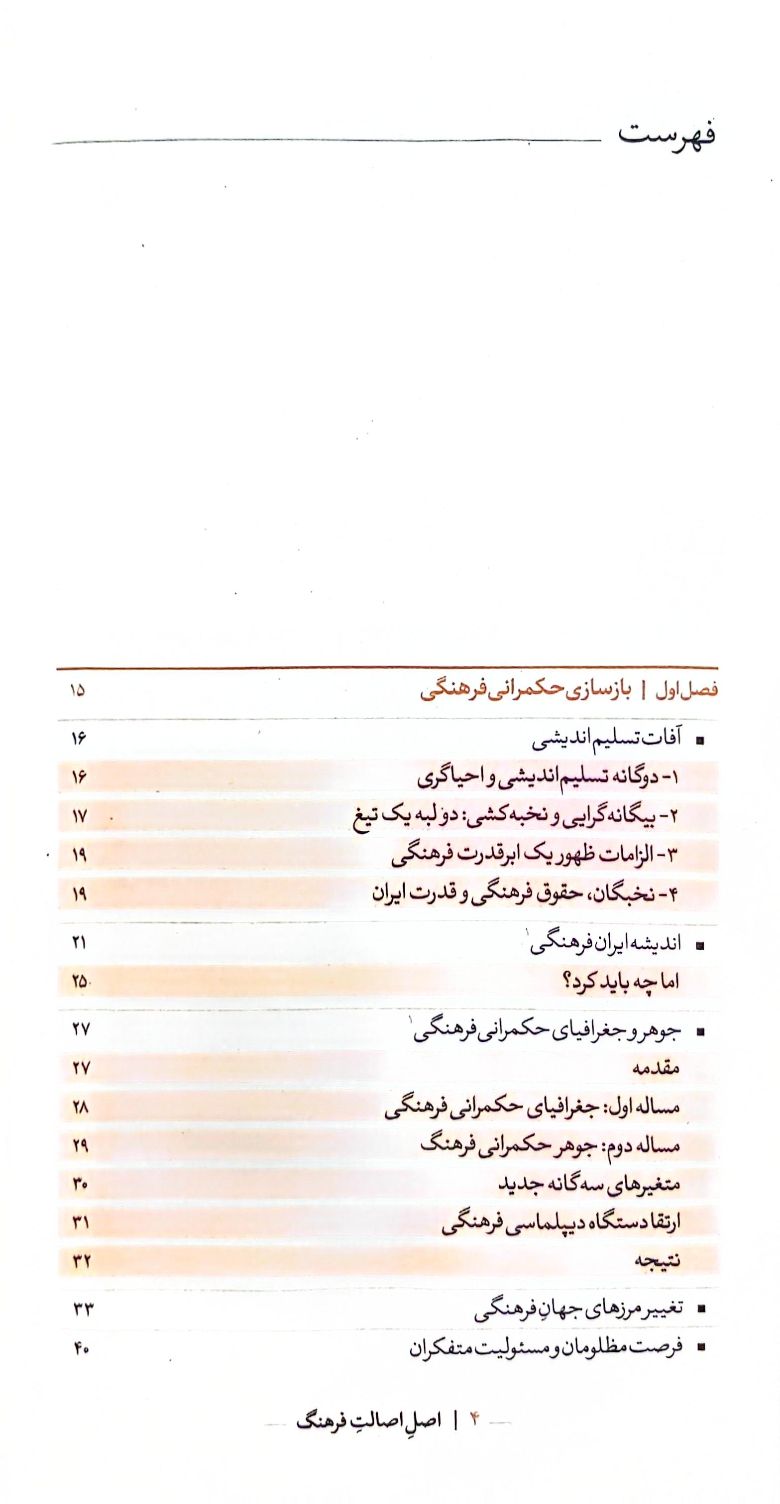 فهرست
فصل اول | بازسازی حکمرانی فرهنگی ۱۵
▪ آفات تسلیم‌اندیشی ۱۶
۱- دوگانه تسلیم‌اندیشی و احیاگری ۱۶
۲- بیگانه‌گرایی و نخبه‌کشی: دو لبه یک تیغ ۱۷
۳- الزامات ظهور یک ابرقدرت فرهنگی ۱۹
۴- نخبگان، حقوق فرهنگی و قدرت ایران ۱۹
▪ اندیشه ایران فرهنگی۱ ۲۱
اما چه باید کرد؟ ۲۵
▪ جوهر و جغرافیای حکمرانی فرهنگی۱ ۲۷
مقدمه ۲۷
مساله اول: جغرافیای حکمرانی فرهنگی ۲۸
مساله دوم: جوهر حکمرانی فرهنگ ۲۹
متغیرهای سه‌گانه جدید ۳۰
ارتقا دستگاه دیپلماسی فرهنگی ۳۱
نتیجه ۳۲
▪ تغییر مرزهای جهانِ فرهنگی ۳۳
▪ فرصت مظلومان و مسئولیت متفکران ۴۰
۴ | اصلِ اصالتِ فرهنگ